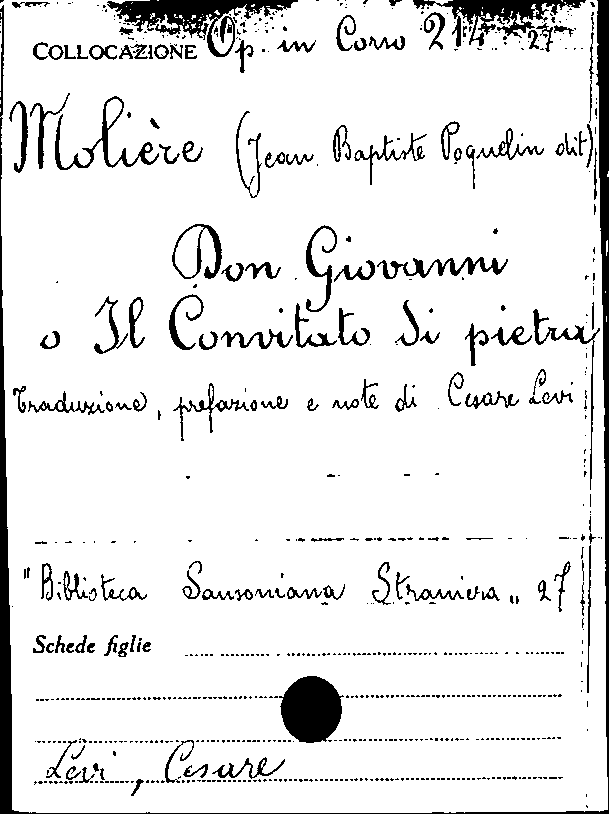 COLLOCAZIONE Op. in Corso 214. 27
Molière (Jean Baptiste Poquelin dit)
Don Giovanni
o Il Convitato di pietra
Traduzione, prefazione e note di Cesare Levi
"Biblioteca Sansoniana Straniera„ 27
Schede figlie
Levi, Cesare